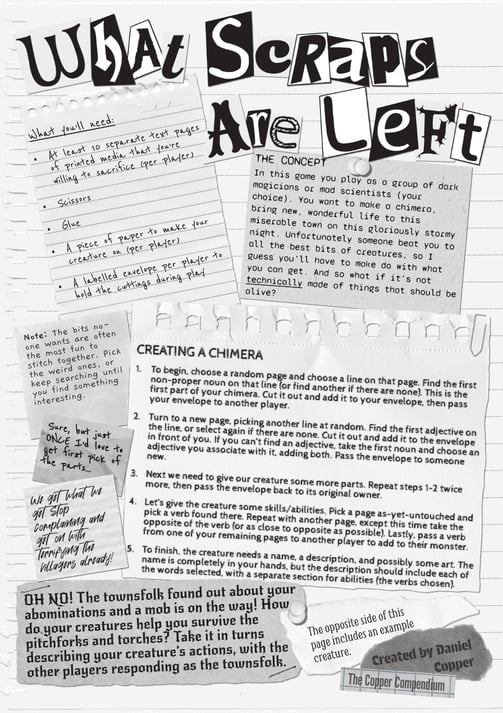 What Scraps
Are Left
What you'll need:
• At least 10 separate text pages
of printed media that you're
willing to sacrifice (per player)
• Scissors
• Glue
• A piece of paper to make your
creature on (per player)
• A labelled envelope per player to
hold the cuttings during play
THE CONCEPT
In this game you play as a group of dark
magicians or mad scientists (your
choice). You want to make a chimera,
bring new, wonderful life to this
miserable town on this gloriously stormy
night. Unfortunately someone beat you to
all the best bits of creatures, so I
guess you'll have to make do with what
you can get. And so what if it's not
technically made of things that should be
alive?
Note: The bits no-
one wants are often
the most fun to
stitch together. Pick
the weird ones, or
keep searching until
you find something
interesting.
Sure, but just
ONCE I'd love to
get first pick of
the parts...
We get what we
get Stop
complaining and
get on with
terrifying the
villagers already!
CREATING A CHIMERA
1. To begin, choose a random page and choose a line on that page. Find the first
non-proper noun on that line (or find another if there are none). This is the
first part of your chimera. Cut it out and add it to your envelope, then pass
your envelope to another player.
2. Turn to a new page, picking another line at random. Find the first adjective on
the line, or select again if there are none. Cut it out and add to the envelope
in front of you. If you can't find an adjective, take the first noun and choose an
adjective you associate with it, adding both. Pass the envelope to someone
new.
3. Next we need to give our creature some more parts. Repeat steps 1-2 twice
more, then pass the envelope back to its original owner.
4. Let's give the creature some skills/abilities. Pick a page as-yet-untouched and
pick a verb found there. Repeat with another page, except this time take the
opposite of the verb (or as close to opposite as possible). Lastly, pass a verb
from one of your remaining pages to another player to add to their monster.
5. To finish, the creature needs a name, a description, and possibly some art. The
name is completely in your hands, but the description should include each of
the words selected, with a separate section for abilities (the verbs chosen).
OH NO! The townsfolk found out about your
abominations and a mob is on the way! How
do your creatures help you survive the
pitchforks and torches? Take it in turns
describing your creature's actions, with the
other players responding as the townsfolk.
The opposite side of this
page includes an example
creature.
Created by Daniel
Copper
The Copper Compendium